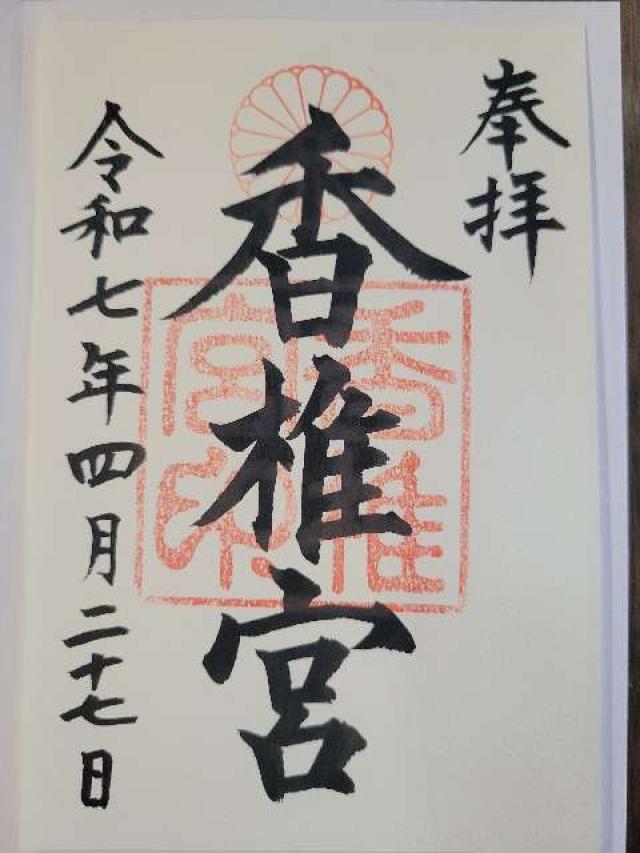 奉拝
香椎宮
香椎宮印
令和七年四月二十七日